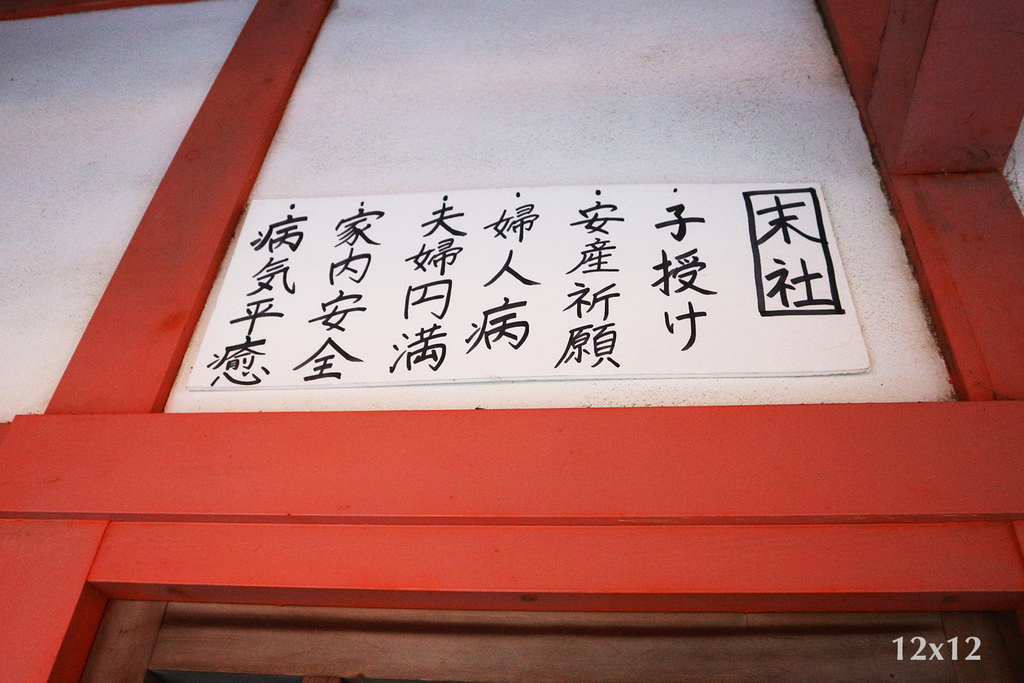 末社
・子授け
・安産祈願
・婦人病
・夫婦円満
・家内安全
・病気平癒
12x12